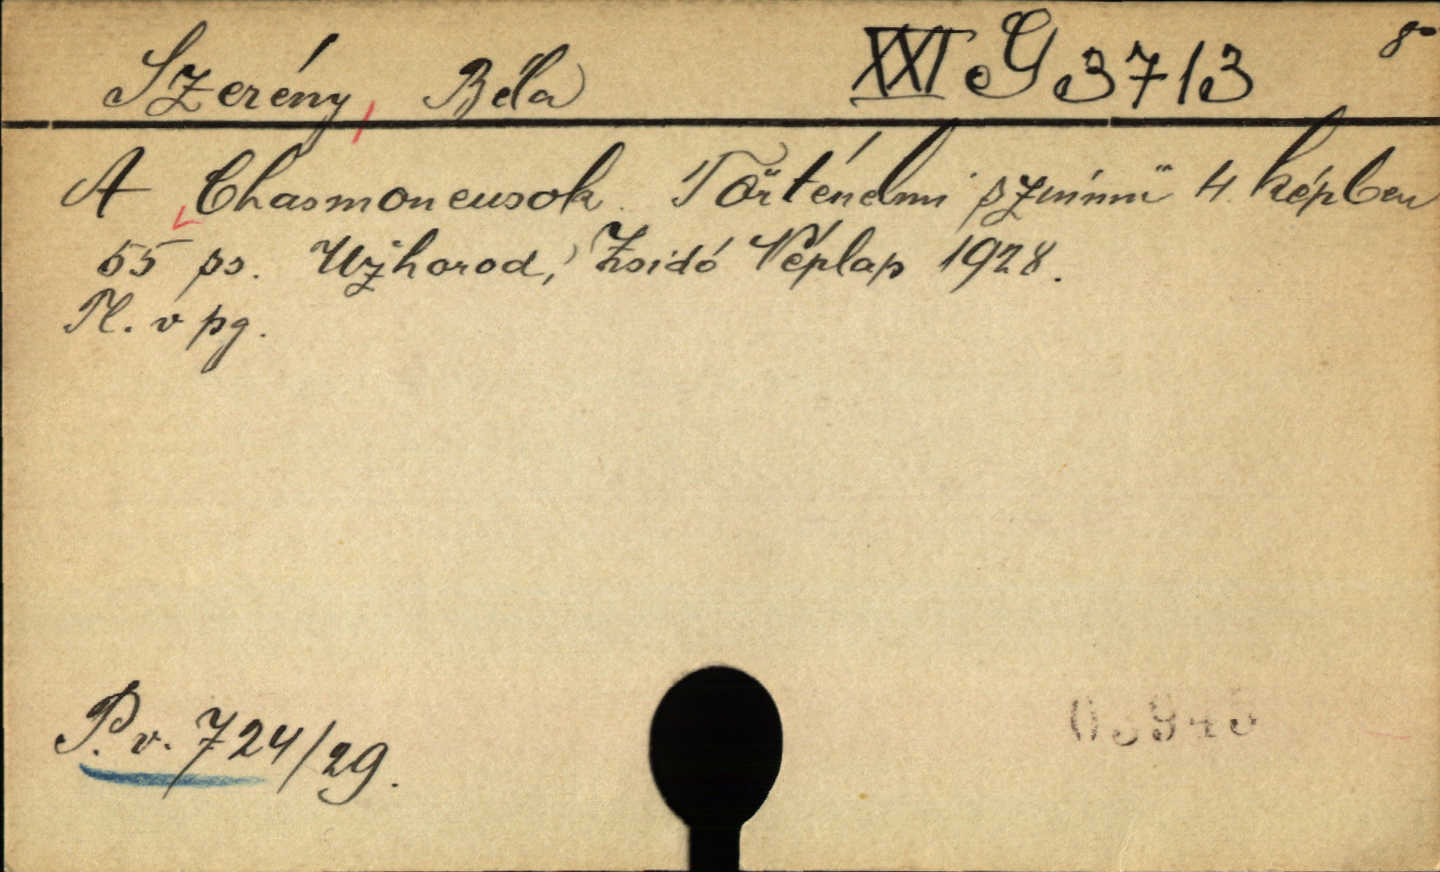 Szerény, Béla XXI G 3713 8°
A Chasmoneusok. Történelmi színmü 4 képben
55 ps. Užhorod, Zsidó Néplap 1928.
Pl. v pg.
P. v. 724/29.
03945